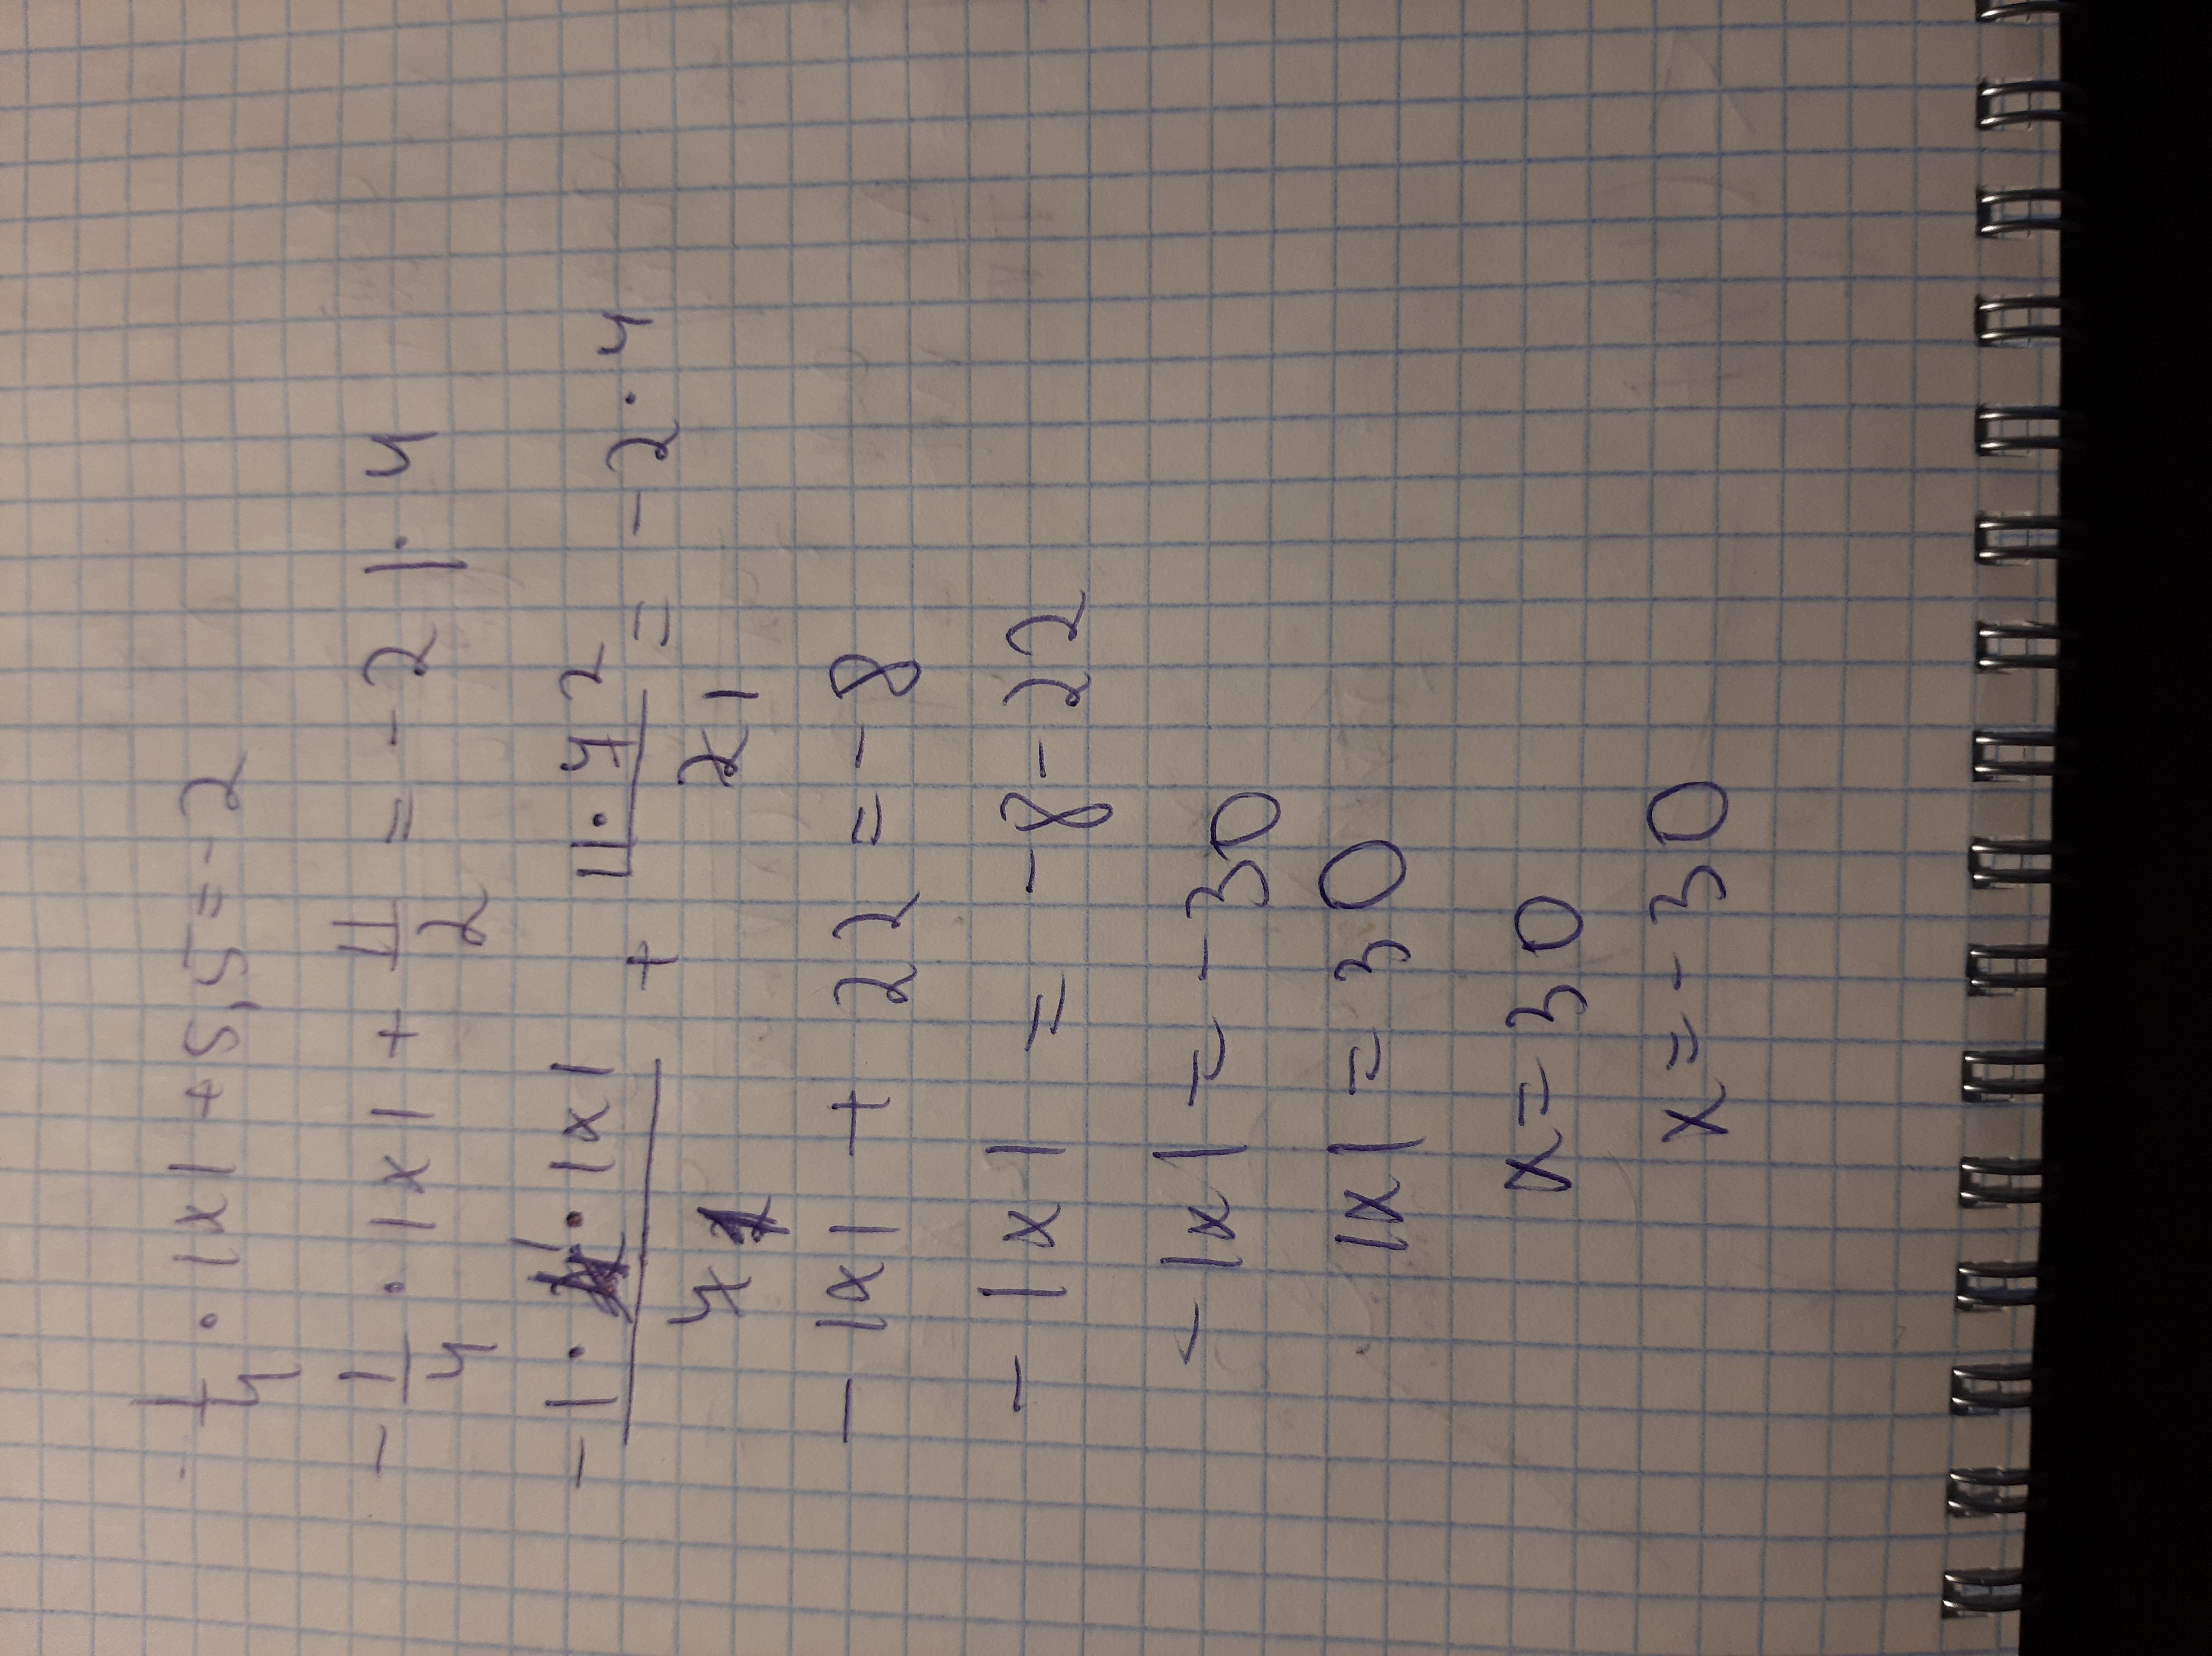 -1/4 · |x| + 5,5 = -2
-1/4 · |x| + 11/2 = -2 |· 4
-1 · · |x| / 4 + 11 · 4 2 / 2 1 = -2 · 4
- |x| + 22 = -8
- |x| = -8 - 22
- |x| = -30
|x| = 30
x = 30
x = -30